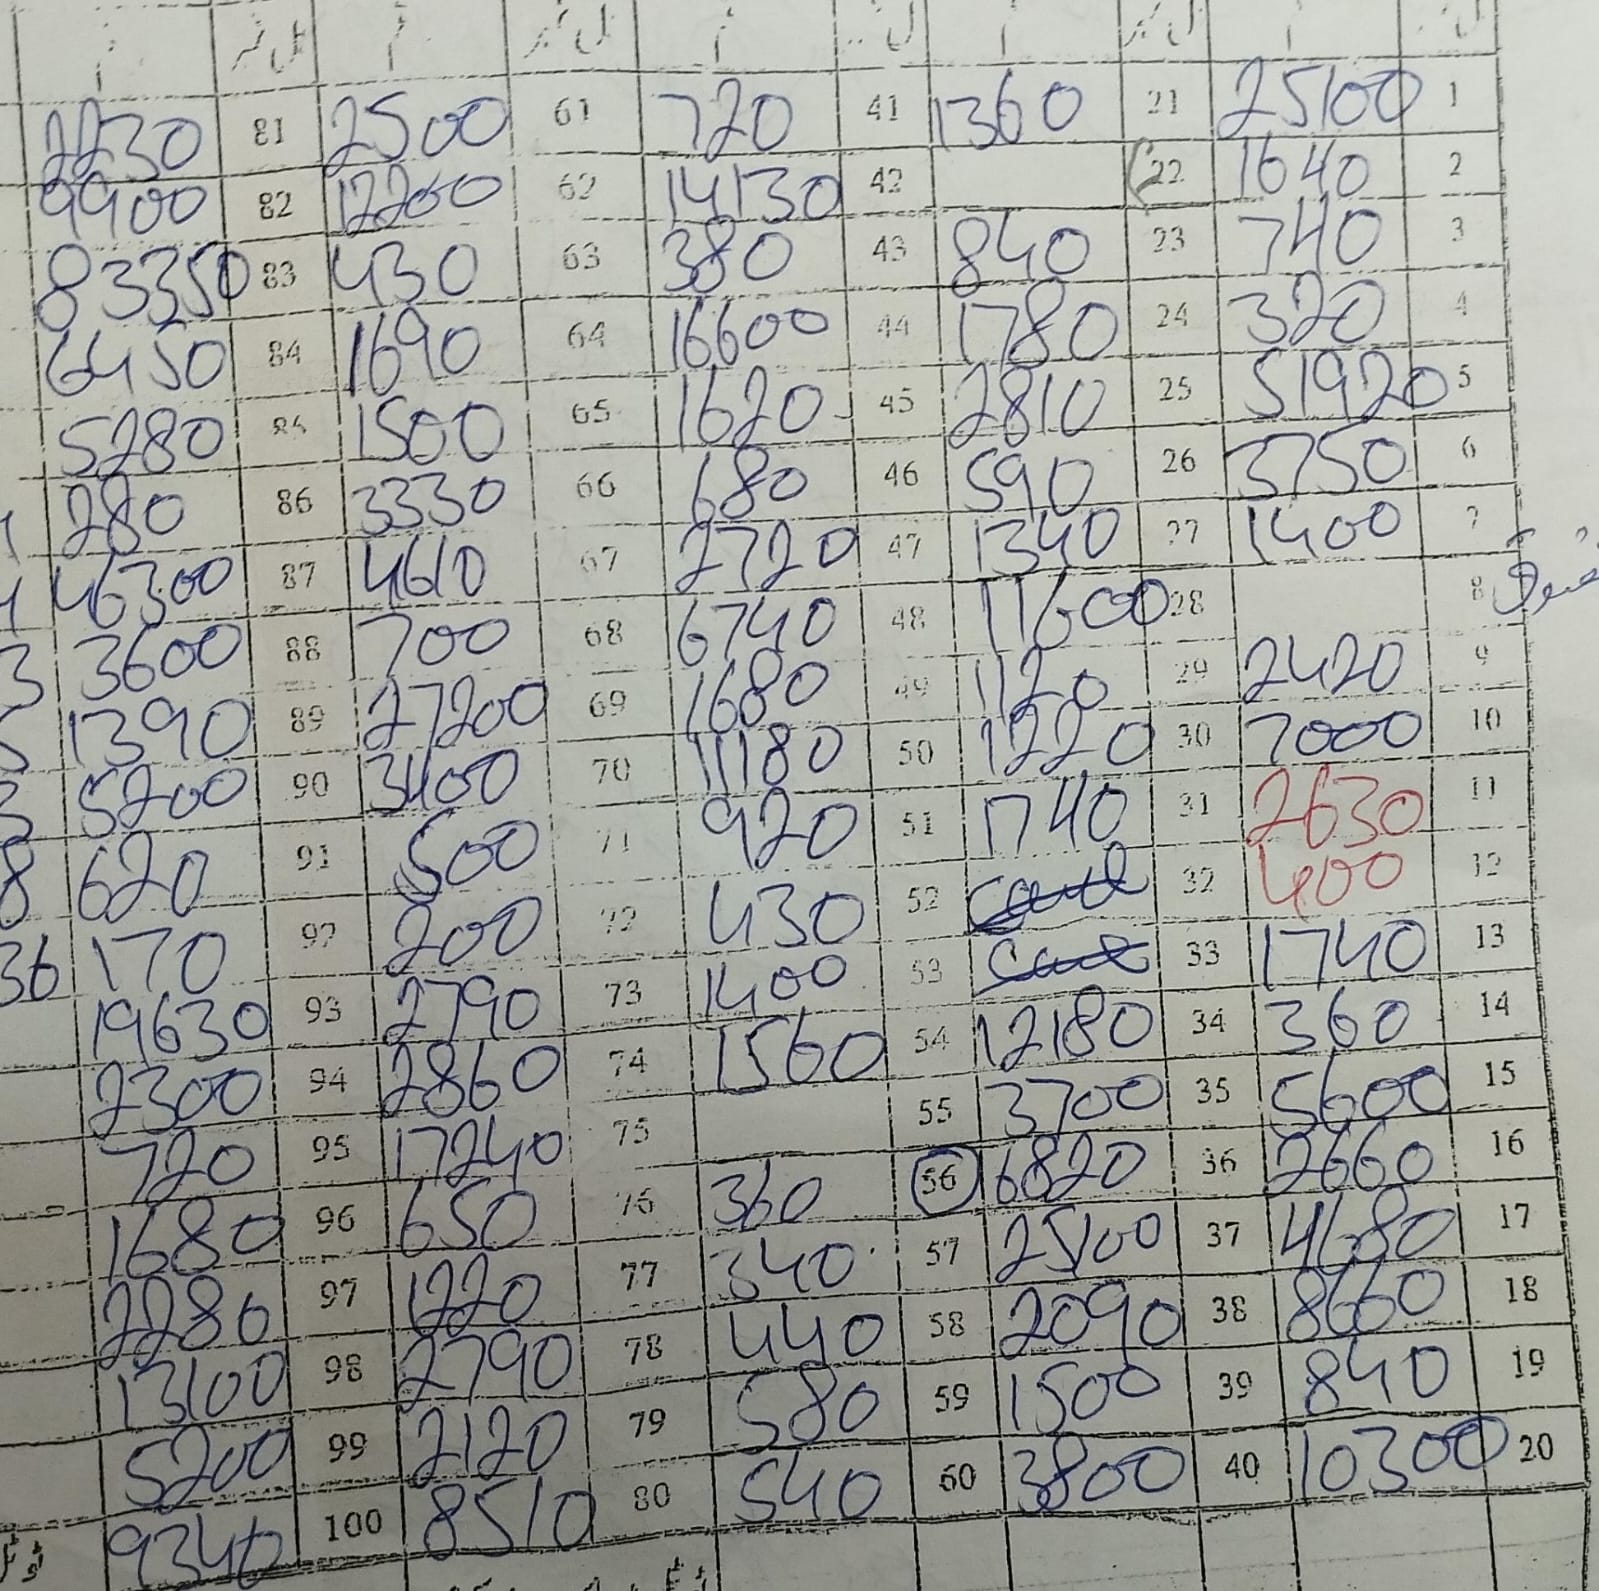 رقم بل نمبر رقم بل نمبر رقم بل نمبر رقم بل نمبر رقم بل نمبر
2230 81 2500 61 720 41 1360 21 25100 1
9900 82 12200 62 14130 42 22 1640 2
83350 83 430 63 380 43 840 23 740 3
6450 84 1690 64 16600 44 1780 24 320 4
5280 85 1500 65 1620 45 2810 25 51920 5
280 86 3330 66 680 46 590 26 3750 6
46300 87 4610 67 2720 47 1340 27 1400 7
3600 88 700 68 6740 48 11600 28 8
1390 89 27200 69 1680 49 1120 29 2420 9
5200 90 3400 70 11180 50 1220 30 7000 10
8 620 91 500 71 920 51 1740 31 2630 11
36 170 92 200 72 430 52 32 400 12
19630 93 2790 73 1400 53 33 1740 13
2300 94 2860 74 1560 54 12180 34 360 14
720 95 17240 75 55 3700 35 5600 15
1680 96 650 76 360 56 6820 36 2660 16
2280 97 1220 77 340 57 25100 37 4680 17
13100 98 2790 78 440 58 2090 38 8660 18
5200 99 2120 79 580 59 1500 39 840 19
9340 100 8510 80 540 60 3800 40 10300 20